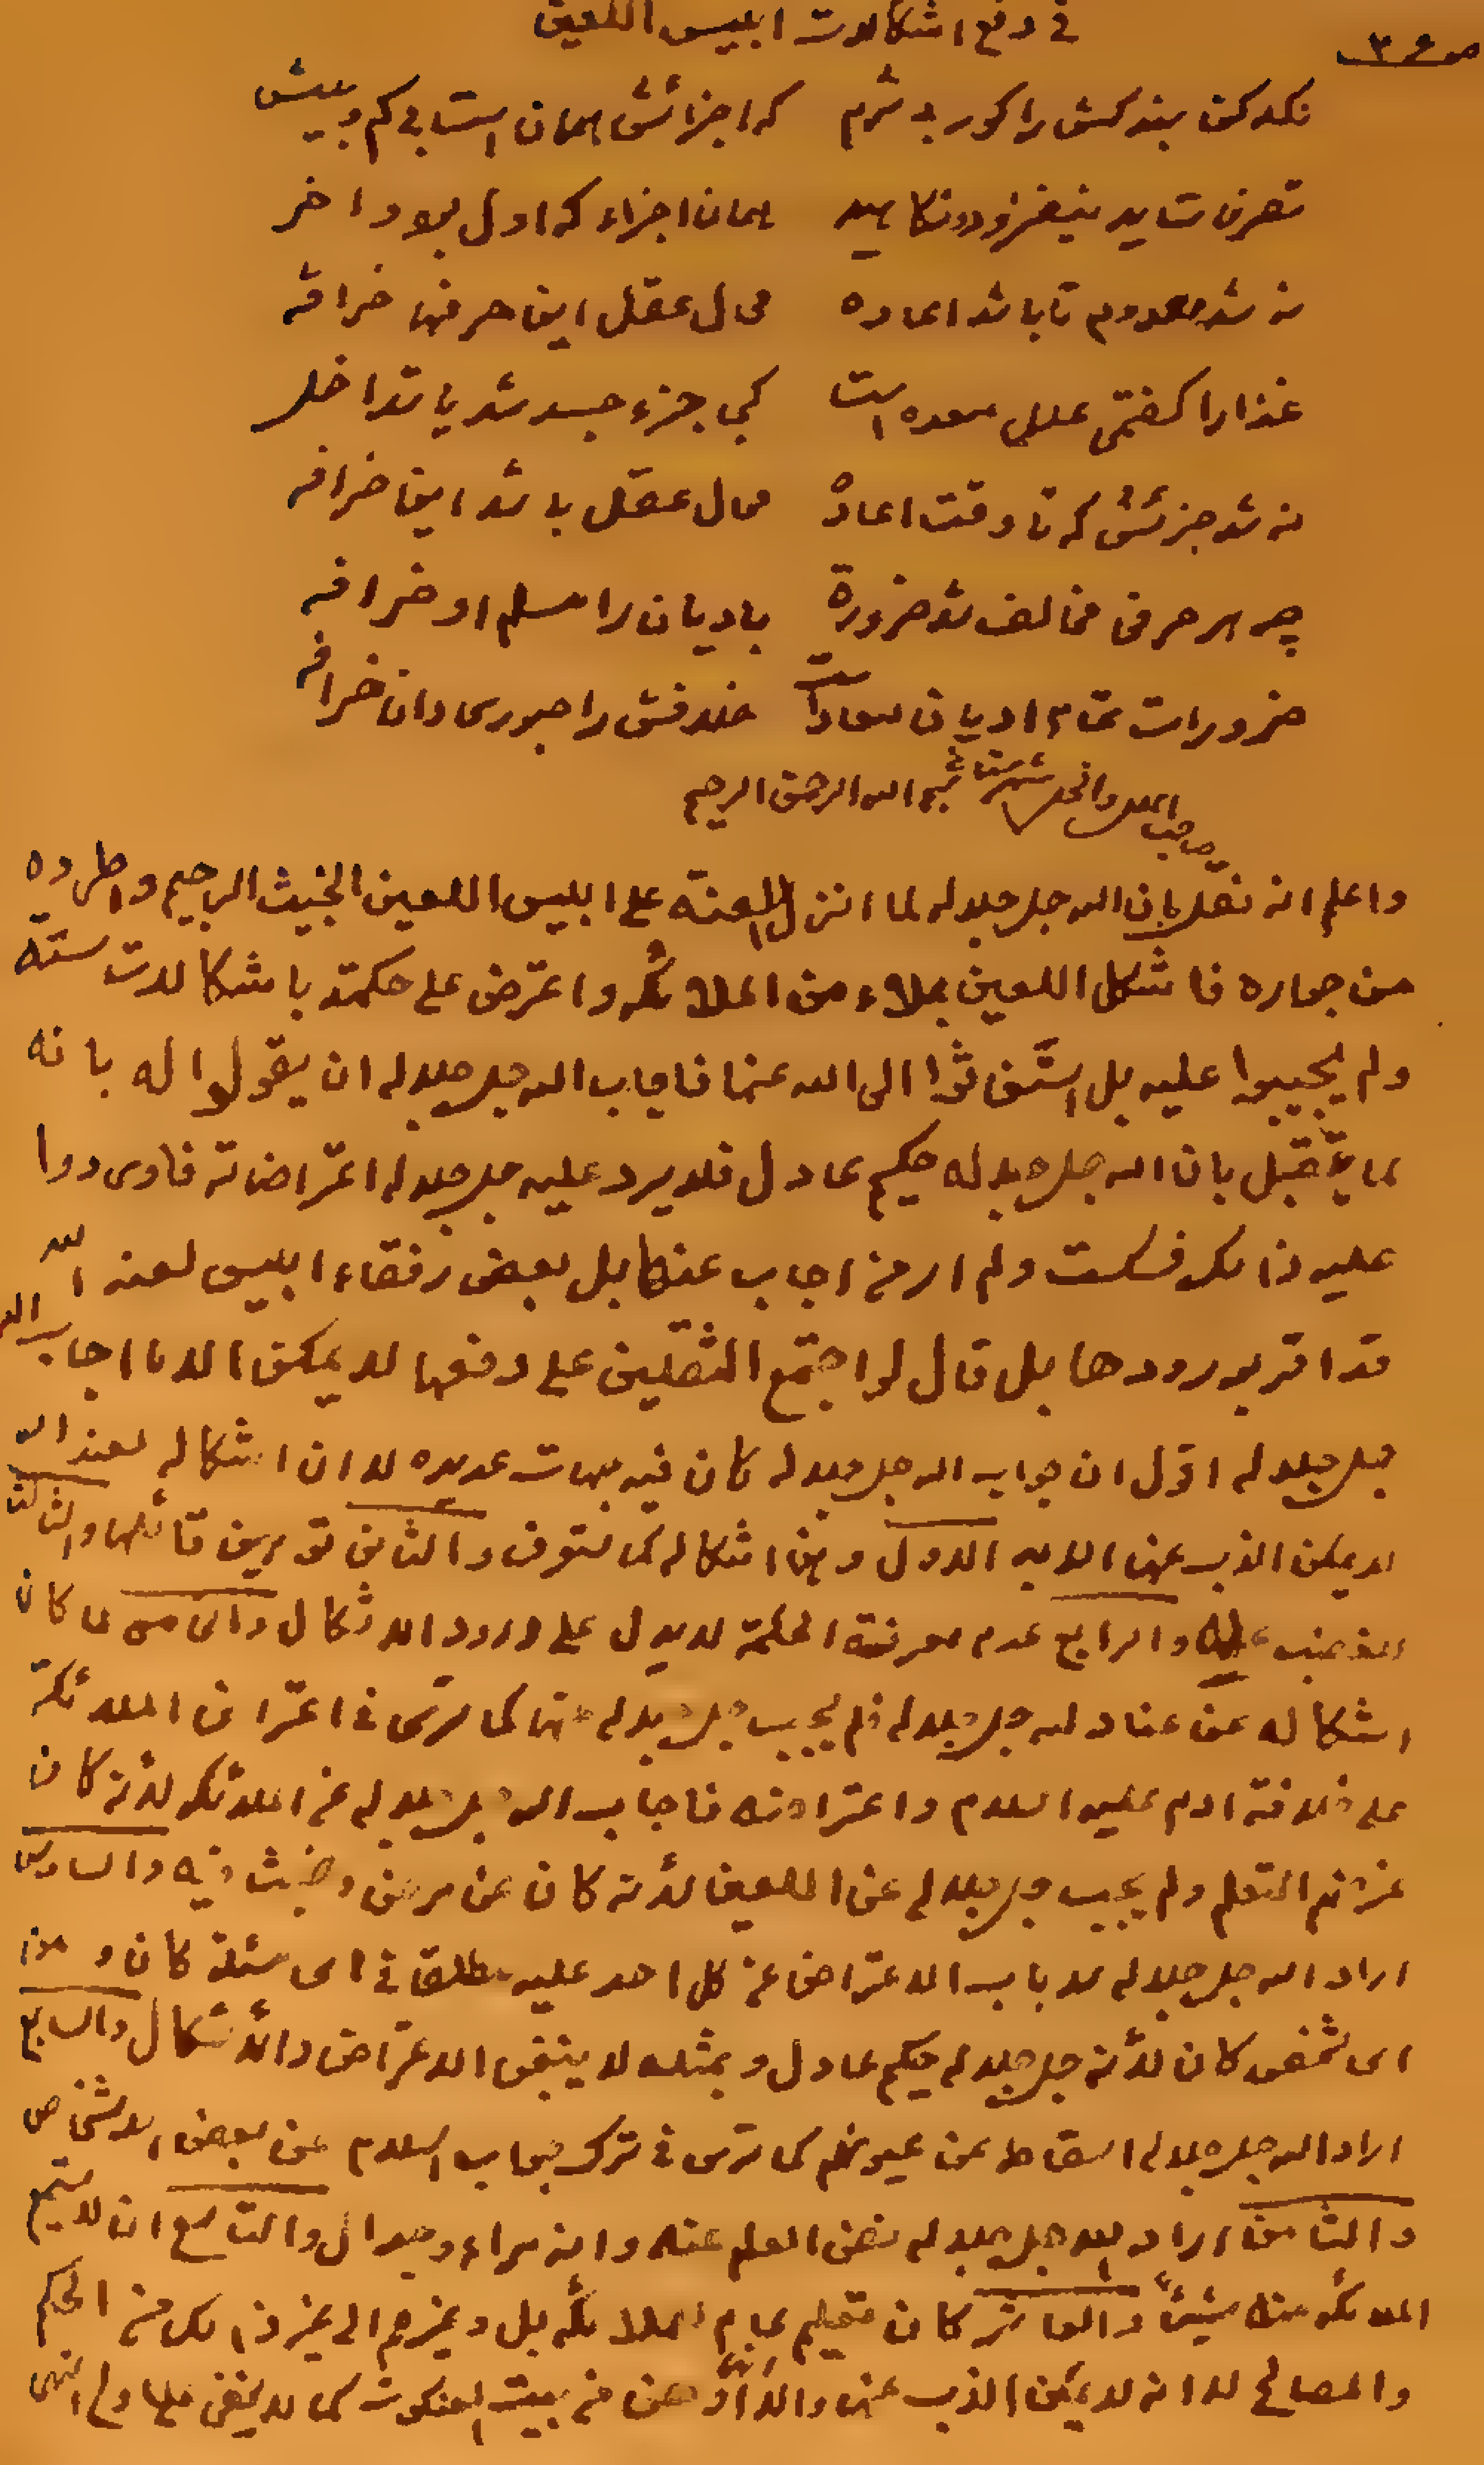 في دفع اشكالات ابليس اللعين
ص ٣٤
نكه كن بند كش را كور بي شرم كه اجزائش همان است بي كم و بيش
تصرف شايد نيفزود ونكاهيد همان اجزاء كه اول بود اخر
نه شد معدوم تا باشد اعاده محال عقل اين حرفها خرافه
غذا را كفتمى علل معده است كى جزء جسد شد يا تداخل
نه شد جزئش كه تا وقت اعاده محال عقل باشد اين خرافه
چه هر حرفى مخالف شد ضرورة باديان را مسلم او خرافه
ضرورات تمام اديان معاد است خلافش را جبورى دان خرافه
صاحب الملل والنحل شهرستانى
بسم الله الرحمن الرحيم
واعلم انه نقل بان الله جل جلاله لما انزل اللعنة على ابليس اللعين الخبيث الرجيم واطرده
من جواره فاشكل اللعين بملاء من الملائكه واعترض على حكمته باشكالات ستة
ولم يجيبوا عليه بل استغاثوا الى الله عنها فاجاب الله جل جلاله ان يقولوا له بانه
لما يتقبل بان الله جل جلاله حكيم عادل فلا يرد عليه جل جلاله اعتراضاته فاوردوا
عليه ذالك فسكت ولم ار من اجاب عنها بل بعض رفقاء ابليس لعنه الله
قد اقر بورودها بل قال لو اجتمع الثقلين على دفعها لا يمكن الا ما اجاب الله
جل جلاله اقول ان جواب الله جل جلاله كان فيه جهات عديده لا ان اشكاله لعنه الله
لا يمكن الذب عنها الاول وهن اشكاله كما ستعرف والثانى توهين قائلها والثالث
الغضب عليه والرابع عدم معرفة الحكمة لا يدل على ورود الاشكال والخامس لما كان
اشكاله عن عناد لله جل جلاله فلم يجيب جل جلاله عنها كما ترى في اعتراض الملائكة
على خلافة ادم عليه السلام واعتراضه فاجاب الله جل جلاله عن الملائكه لانه كان
غرضهم التعلم ولم يجيب جل جلاله عن اللعين لانه كان عن مرض وخبث فيه والسادس
اراد الله جل جلاله سد باب الاعتراض عن كل احد عليه مطلقا في اى مسئلة كان ومن
اى شخص كان لانه جل جلاله حكيم عادل وبمثله لا ينبغى الاعتراض والاشكال والسابع
اراد الله جل جلاله اسقاطه عن عيونهم كما ترى في ترك جواب السلام عن بعض الاشخاص
والثامن اراد الله جل جلاله نفى العلم عنه وانه مراء وجدال والتاسع ان لا يستمع
الملائكه منه شيئا والعاشر كان تعليم عام لملائكه بل وغيرهم الى غير ذالك من الحكم
والمصالح لا انه لا يمكن الذب عنها والا انها اوهن من بيت العنكبوت كما لا يخفى على اولى النهى